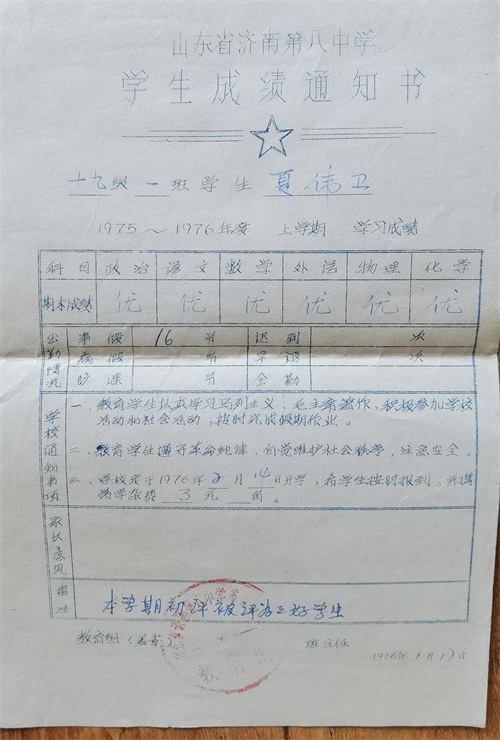 山东省济南第八中学
学生成绩通知书
十九级 一 班学生 夏伟卫
1975～1976年度 上学期 学习成绩
科目 政治 语文 数学 外语 物理 化学
期末成绩 优 优 优 优 优 优
出勤情况 事假 16 节 迟到 次
病假 节 早退 次
旷课 节 全勤
学校通知事项 一、教育学生认真学习马列主义、毛主席著作，积极参加学校
活动和社会活动，按时完成假期作业。
二、教育学生遵守革命纪律，自觉维护社会秩序，注意安全。
三、学校于1976年2月14日开学，希学生按时报到，并携
学杂费 3 元 角。
家长意见
备注 本学期初 年被评为三好学生
教育组（盖章） 班主任
1976年1月17日